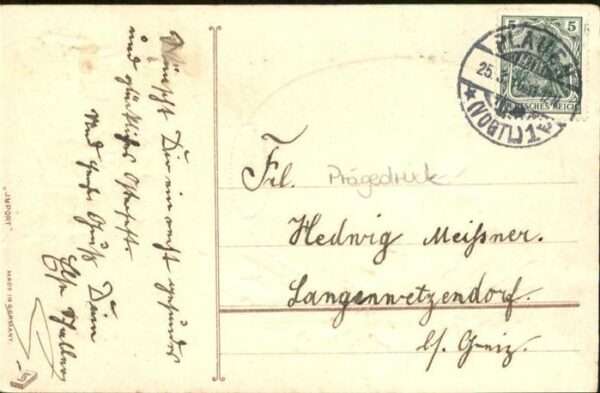 Wünscht Dir ein recht gesundes
und glückliches Osterfest
Und herzl. Gruß Dein
"IMPORT"
MADE IN GERMANY
5 5
PLAUEN
(VOGTL.)
25.
DEUTSCHES REICH
Frl. Prägedruck
Hedwig Meißner.
Langenwetzendorf.
b/. Greiz.